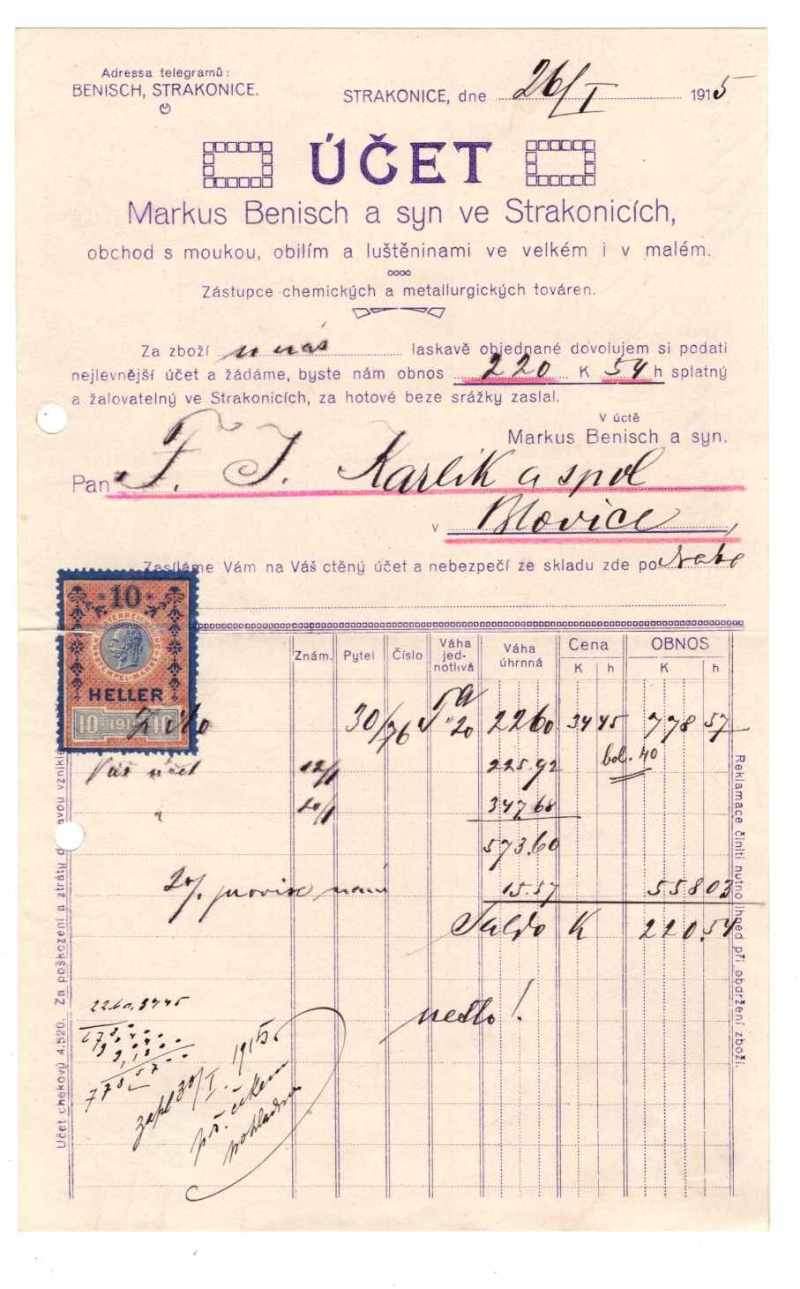 Adressa telegramů:
BENISCH, STRAKONICE.
STRAKONICE, dne 26/I 1915
ÚČET
Markus Benisch a syn ve Strakonicích,
obchod s moukou, obilím a luštěninami ve velkém i v malém.
Zástupce chemických a metallurgických továren.
Za zboží u nás laskavě objednané dovolujem si podati
nejlevnější účet a žádáme, byste nám obnos 220 K 54 h splatný
a žalovatelný ve Strakonicích, za hotové beze srážky zaslal.
V úctě
Markus Benisch a syn.
Pan F. J. Karlik a spol
v Blovice
Zasíláme Vám na Váš ctěný účet a nebezpečí ze skladu zde po
10
HELLER
10 191 10
Znám. Pytel Číslo Váha jed-notlivá Váha úhrnná Cena K h OBNOS K h
Žito 30/76 20 2260 34 45 778 57
Váš účet 12/1 225.92 bol. 40
" 20/1 347.68
573.60
2% provise nám 15.57 558 03
Saldo K 220.54
netto!
2260.3445
778.57
zapl 30/I. 1915
Účet chekový 4.520. Za poškození a ztráty
Reklamace činiti nutno ihned při obdržení zboží.